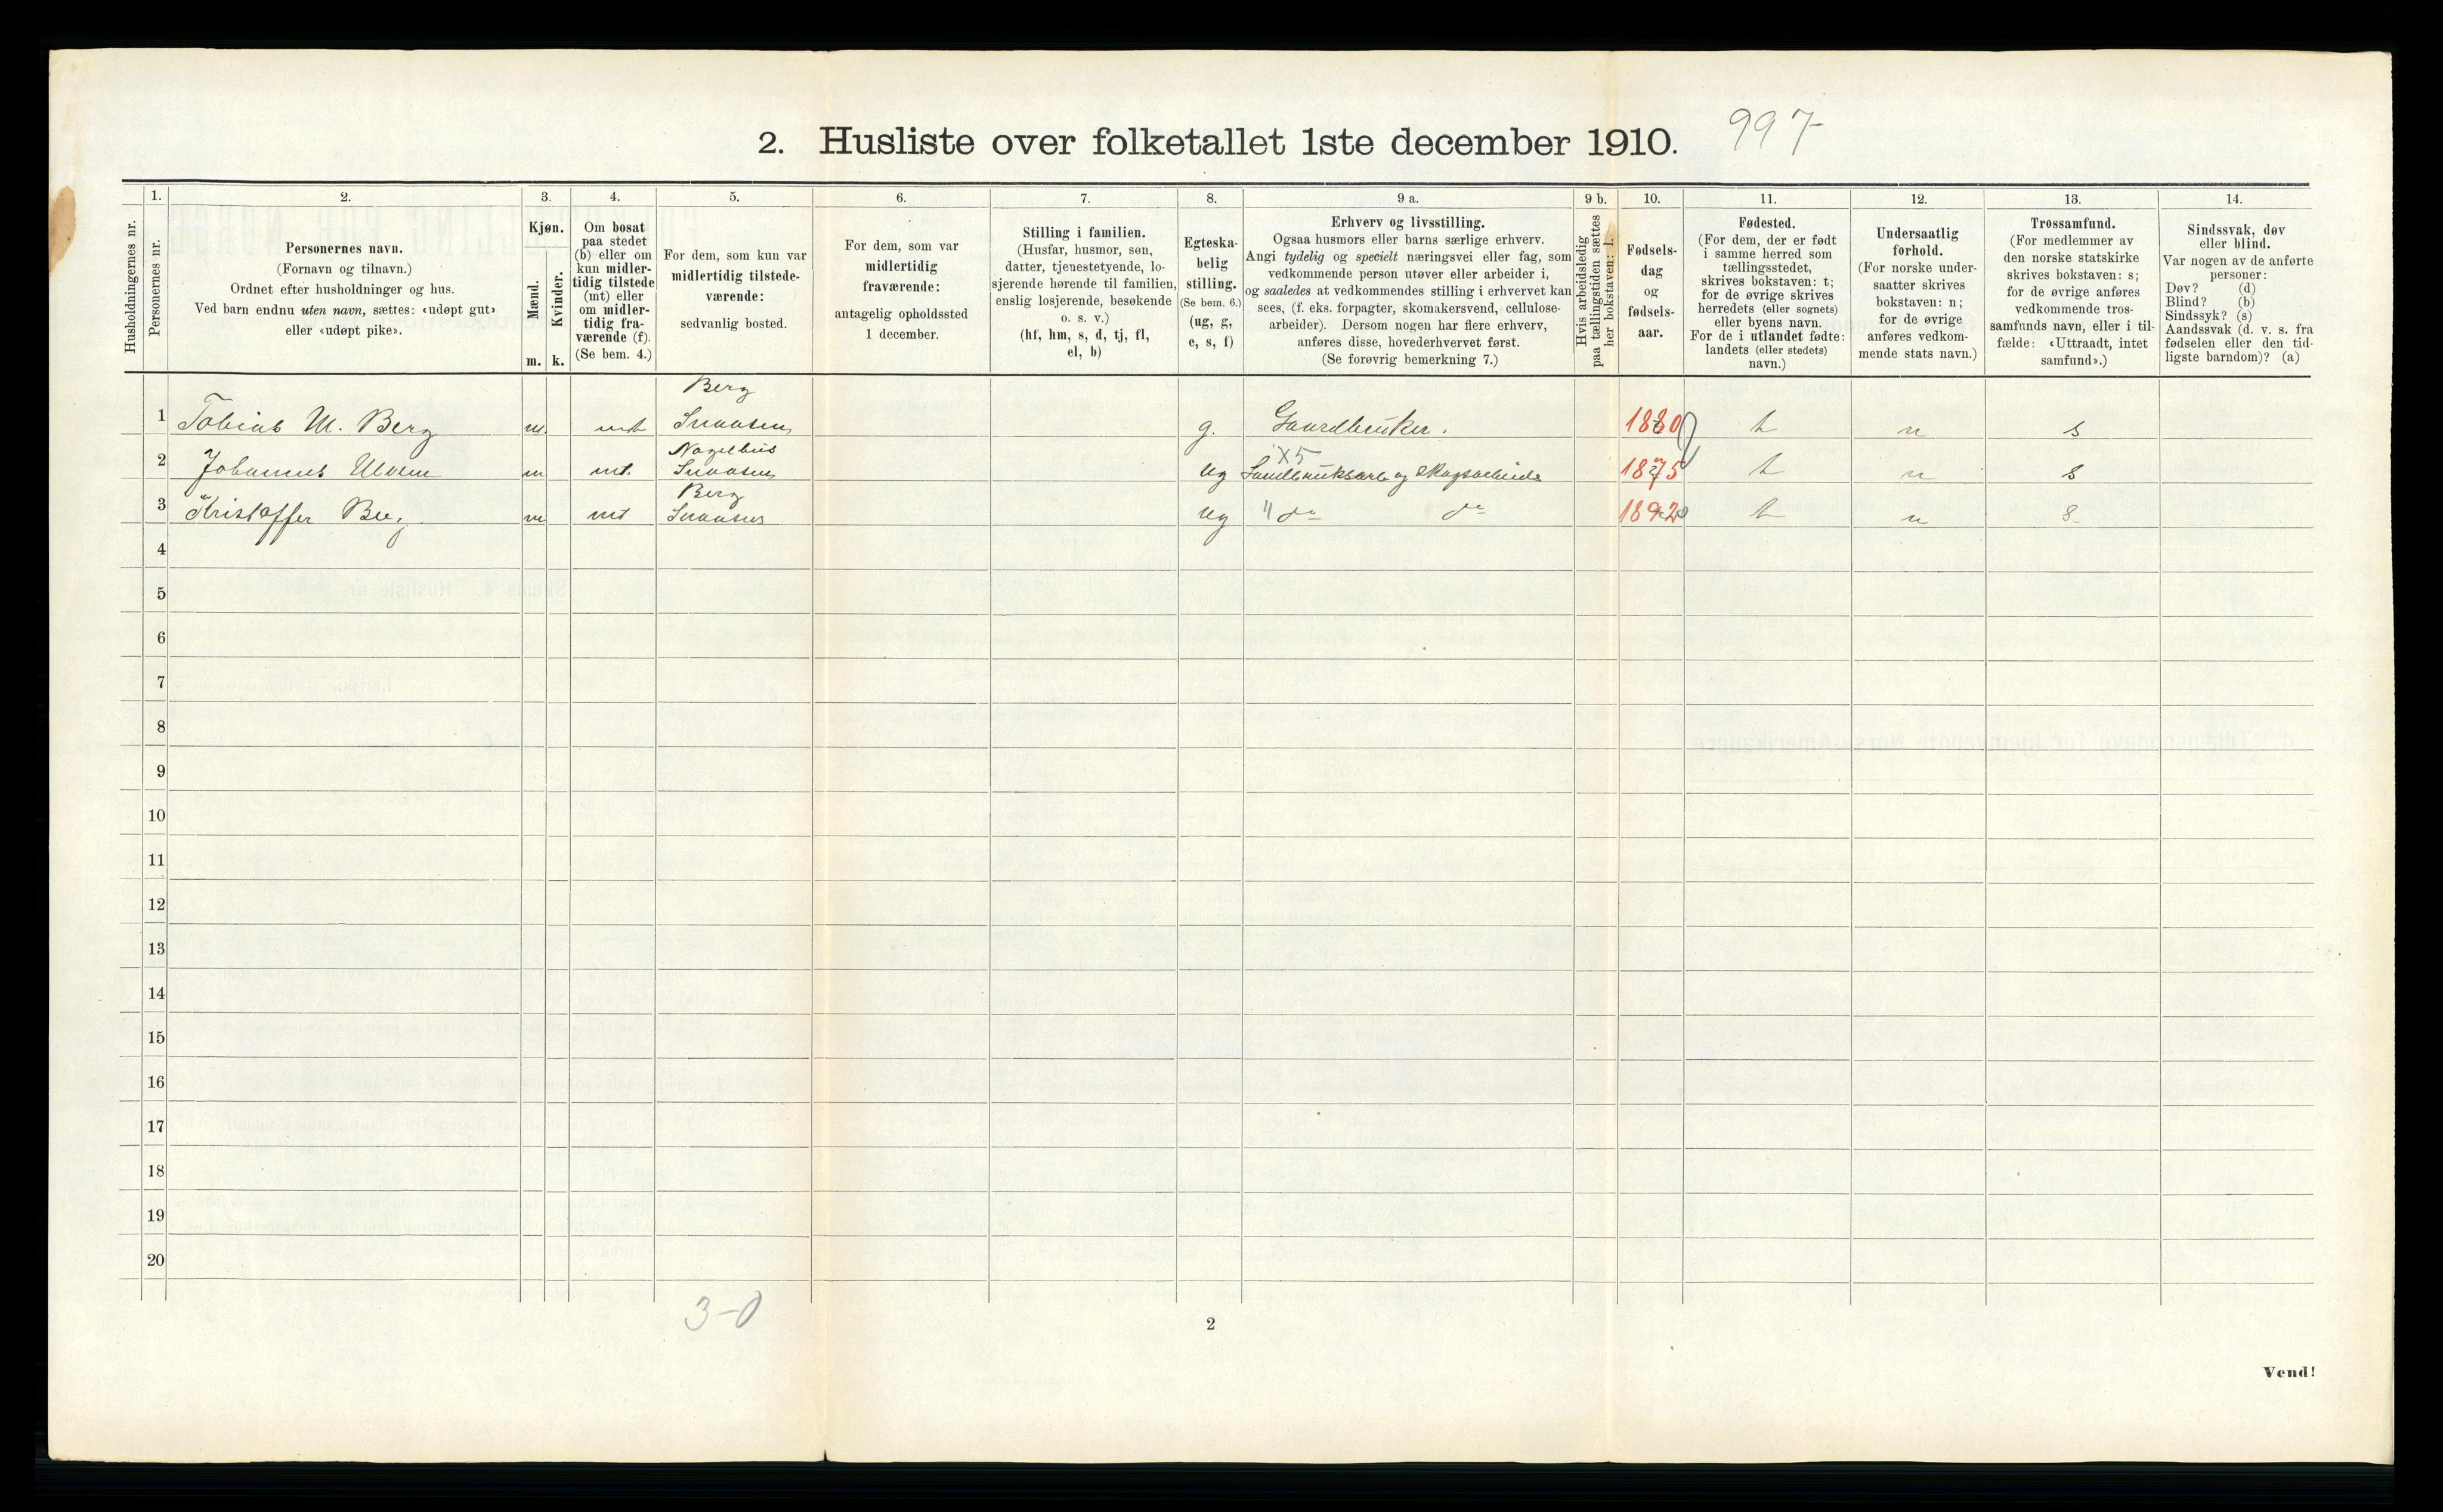 2. Husliste over folketallet 1ste december 1910.
997
Husholdningernes nr.
1.
Personernes nr.
2.
Personernes navn.
(Fornavn og tilnavn.)
Ordnet efter husholdninger og hus.
Ved barn endnu uten navn, sættes: «udøpt gut»
eller «udøpt pike».
3.
Kjøn.
Mænd.
Kvinder.
m. k.
4.
Om bosat
paa stedet
(b) eller om
kun midler-
tidig tilstede
(mt) eller
om midler-
tidig fra-
værende (f).
(Se bem. 4.)
5.
For dem, som kun var
midlertidig tilstede-
værende:
sedvanlig bosted.
6.
For dem, som var
midlertidig
fraværende:
antagelig opholdssted
1 december.
7.
Stilling i familien.
(Husfar, husmor, søn,
datter, tjenestetyende, lo-
sjerende hørende til familien,
enslig losjerende, besøkende
o. s. v.)
(hf, hm, s, d, tj, fl,
el, b)
8.
Egteska-
belig
stilling.
(Se bem. 6.)
(ug, g,
e, s, f)
9 a.
Erhverv og livsstilling.
Ogsaa husmors eller barns særlige erhverv.
Angi tydelig og specielt næringsvei eller fag, som
vedkommende person utøver eller arbeider i,
og saaledes at vedkommendes stilling i erhvervet kan
sees, (f. eks. forpagter, skomakersvend, cellulose-
arbeider). Dersom nogen har flere erhverv,
anføres disse, hovederhvervet først.
(Se forøvrig bemerkning 7.)
9 b.
Hvis arbeidsledig
paa tællingstiden sættes
her bokstaven: l.
10.
Fødsels-
dag
og
fødsels-
aar.
11.
Fødested.
(For dem, der er født
i samme herred som
tællingsstedet,
skrives bokstaven: t;
for de øvrige skrives
herredets (eller sognets)
eller byens navn.
For de i utlandet fødte:
landets (eller stedets)
navn.)
12.
Undersaatlig
forhold.
(For norske under-
saatter skrives
bokstaven: n;
for de øvrige
anføres vedkom-
mende stats navn.)
13.
Trossamfund.
(For medlemmer av
den norske statskirke
skrives bokstaven: s;
for de øvrige anføres
vedkommende tros-
samfunds navn, eller i til-
fælde: «Uttraadt, intet
samfund».)
14.
Sindssvak, døv
eller blind.
Var nogen av de anførte
personer:
Døv? (d)
Blind? (b)
Sindssyk? (s)
Aandssvak (d. v. s. fra
fødselen eller den tid-
ligste barndom)? (a)
Berg
1 Tobias M. Berg m. mt Snaasen g. Gaardbruker. 1880 t n s
Nagelhus
X5
2 Johannes m mt. Snaasen ug og Skogsarbeide 1875 t n s
Berg
3 Kristoffer Berg m mt Snaasen ug " do do 1892 t n s
4
5
6
7
8
9
10
11
12
13
14
15
16
17
18
19
20
3-0
2
Vend!